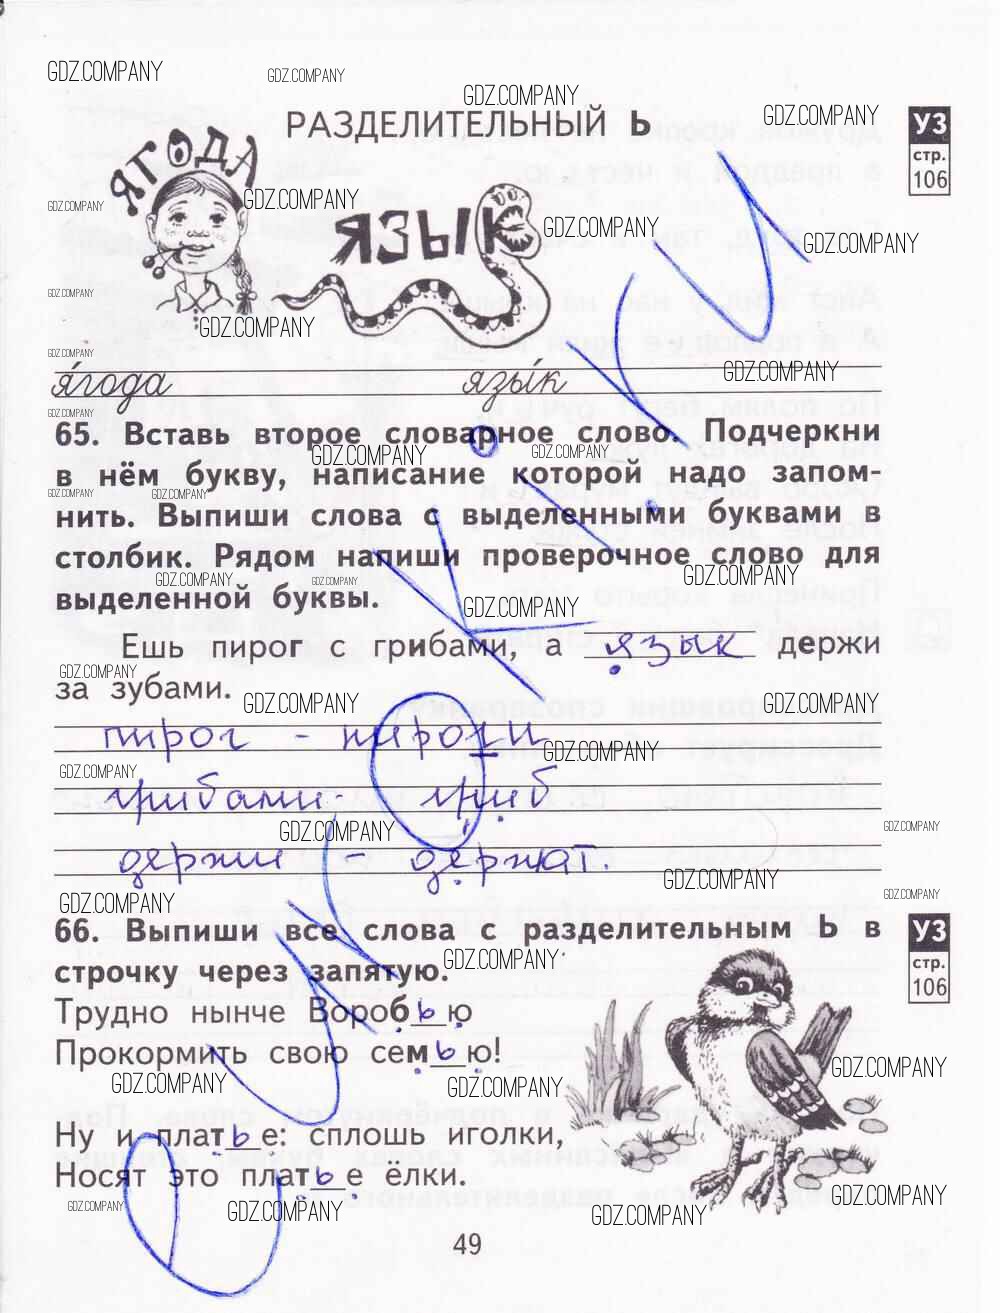 GDZ.COMPANY
РАЗДЕЛИТЕЛЬНЫЙ Ь
УЗ
стр.
106
ЯГОДА
ЯЗЫК
я́года язы́к
65. Вставь второе словарное слово. Подчеркни
в нём букву, написание которой надо запом-
нить. Выпиши слова с выделенными буквами в
столбик. Рядом напиши проверочное слово для
выделенной буквы.
Ешь пирог с грибами, а язык держи
за зубами.
пирог - пироги
грибами - гриб
держи - держат.
66. Выпиши все слова с разделительным Ь в
строчку через запятую.
УЗ
стр.
106
Трудно нынче Воробью
Прокормить свою семью!
Ну и платье: сплошь иголки,
Носят это платье ёлки.
49